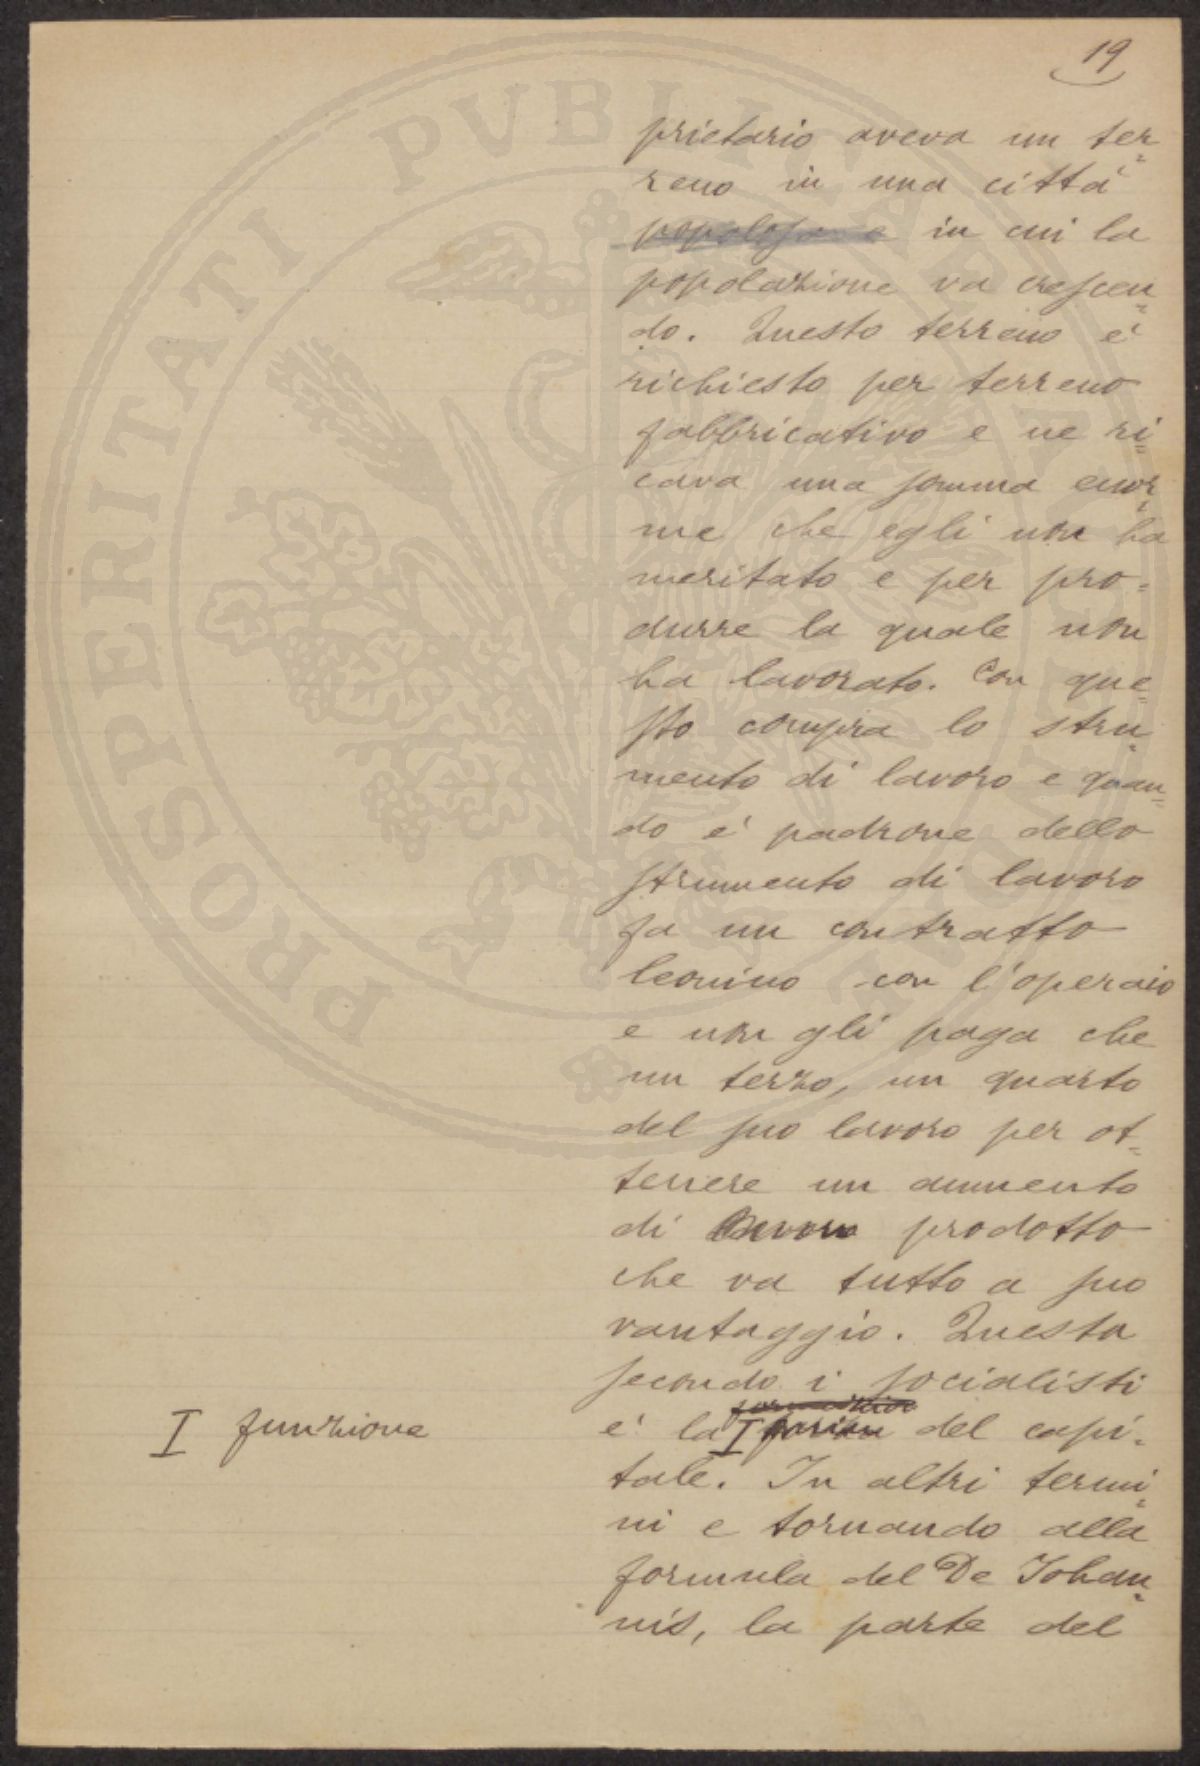 19
prietario aveva un ter=
reno in una città
popolosa e in cui la
popolazione va crescen=
do. Questo terreno è
richiesto per terreno
fabbricativo e ne ri=
cava una somma enor=
me che egli non ha
meritato e per pro=
durre la quale non
ha lavorato. Con que=
sto compra lo stru=
mento di lavoro e quan=
do è padrone dello
strumento di lavoro
fa un contratto
leonino con l'operaio
e non gli paga che
un terzo, un quarto
del suo lavoro per ot=
tenere un aumento
di lavoro prodotto
che va tutto a suo
vantaggio. Questa
secondo i socialisti
I funzione
è la I del capi=
tale. In altri termi=
ni e tornando alla
formula del De Johan=
nis, la parte del
PROSPERITATI PVBLICAE AVGENDAE